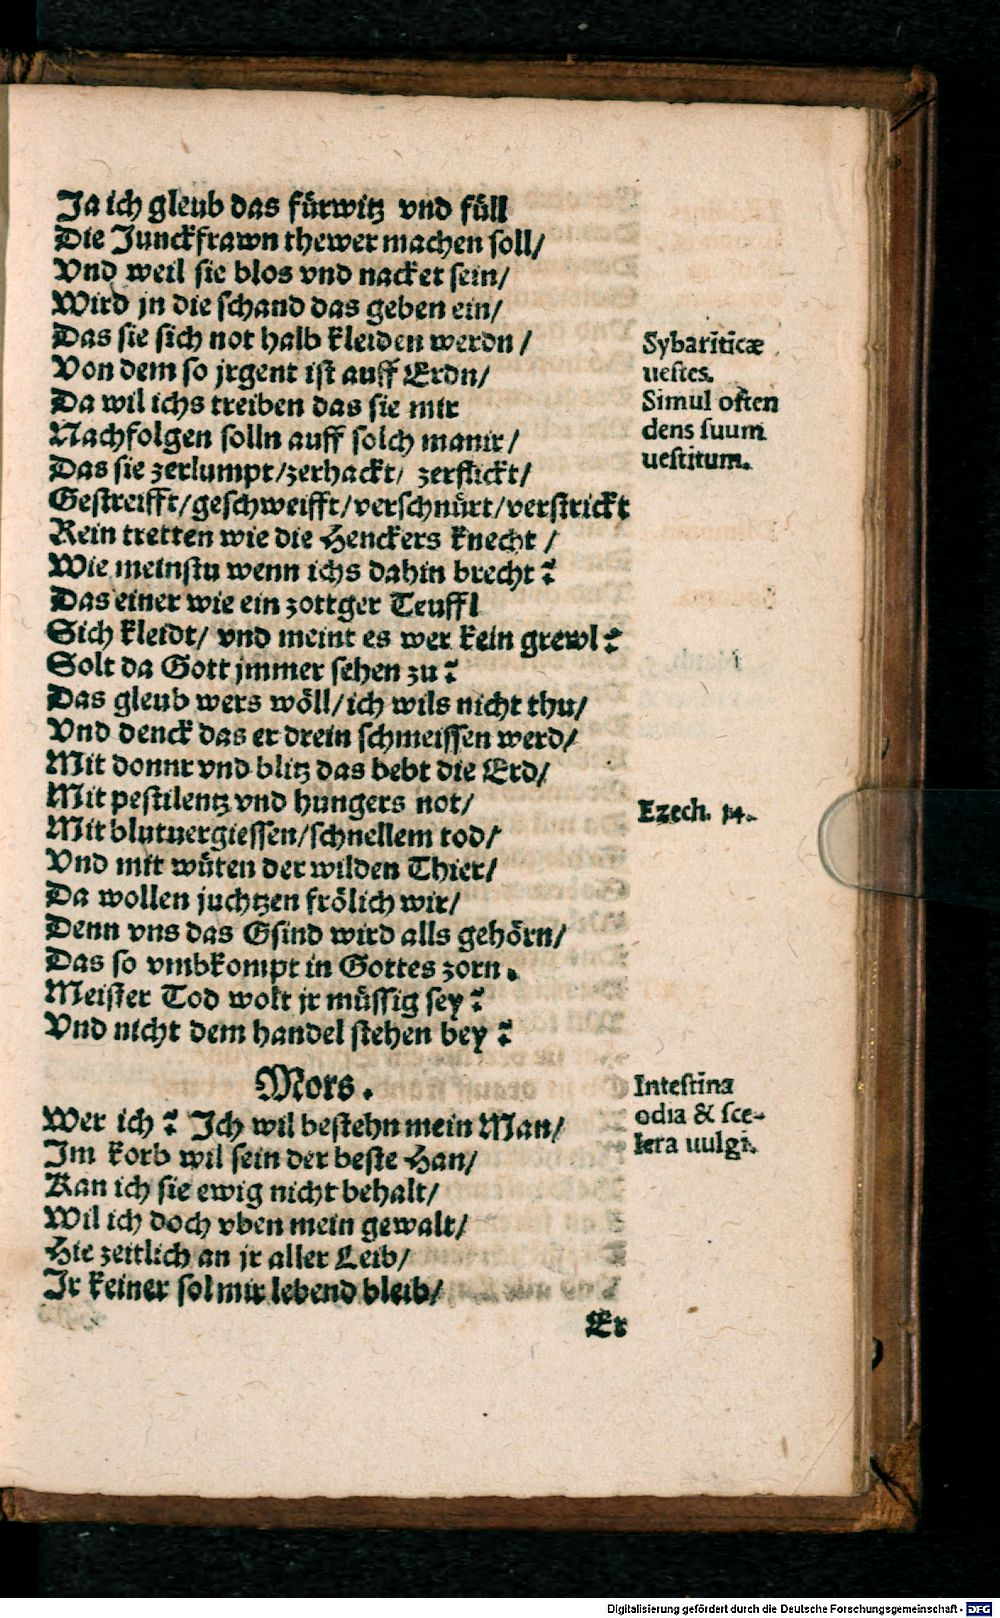 Ja ich gleub das fürwitz vnd füll
Die Junckfrawn thewer machen soll/
Vnd weil sie blos vnd nacket sein/
Wird jn die schand das geben ein/
Das sie sich not halb kleiden werdn /
Von dem so jrgent ist auff Erdn/
Da wil ichs treiben das sie mir
Nachfolgen solln auff solch manir/
Das sie zerlumpt/zerhackt/ zerflickt/
Gestreifft/geschweifft/verschnürt/verstrickt
Rein tretten wie die Henckers knecht /
Wie meinstu wenn ichs dahin brecht?
Das einer wie ein zottger Teuffl
Sich kleidt/ vnd meint es wer kein grewl?
Solt da Gott jmmer sehen zu?
Das gleub wers wöll/ich wils nicht thu/
Vnd denck das er drein schmeissen werd/
Mit donnr vnd blitz das bebt die Erd/
Mit pestilentz vnd hungers not/
Mit blutuergiessen/schnellem tod/
Vnd mit wüten der wilden Thier/
Da wollen juchtzen frölich wir/
Denn vns das Gsind wird alls gehörn/
Das so vmbkompt in Gottes zorn.
Meister Tod wolt jr müssig sey?
Vnd nicht dem handel stehen bey?
Mors.
Wer ich? Ich wil bestehn mein Man/
Im korb wil sein der beste Han/
Kan ich sie ewig nicht behalt/
Wil ich doch vben mein gewalt/
Hie zeitlich an jr aller Leib/
Ir keiner sol mir lebend bleib/
Er
Sybariticæ
uestes.
Simul osten
dens suum
uestitum.
Ezech. 14.
Intestina
odia & sce-
lera uulgi.
Digitalisierung gefördert durch die Deutsche Forschungsgemeinschaft - DFG